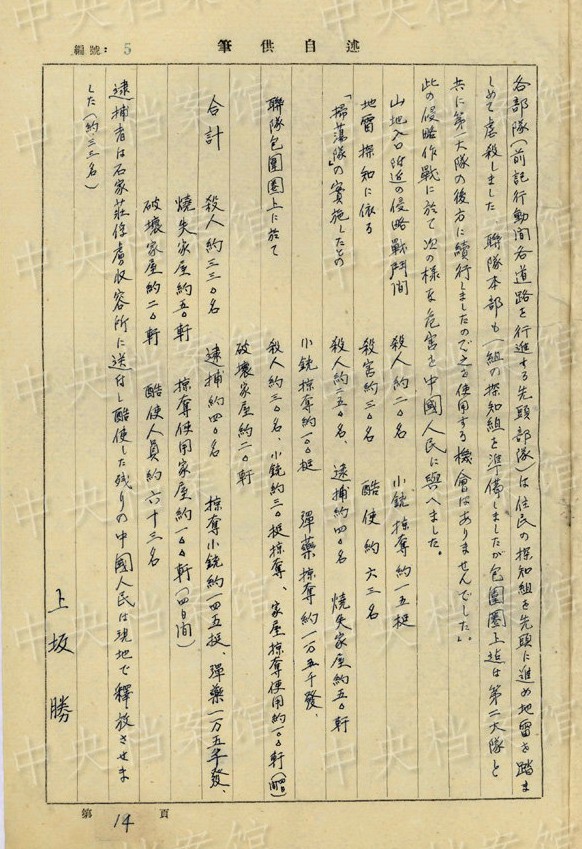 編號：5
述自供筆
各部隊(前記行動間各道路を行進する先頭部隊)は住民の探知組を先頭に進め地雷を踏ま
しめて虐殺しました 聯隊本部も一組の探知組を準備しましたが包圍圈上迄は第二大隊と
共に第一大隊の後方に續行しましたので之を使用する機會はありませんでした。
此の侵略作戰に於て次の様な危害を中國人民に與へました。
山地入口附近の侵略戰鬥間 殺人約二〇名 小銃掠奪約一五挺
地雷探知に依る 殺害約三〇名 酷使約六三名
「掃蕩隊」の實施したもの 殺人約二五〇名、逮捕約四〇名 燒失家屋約五〇軒
小銃掠奪約一〇〇挺 彈藥掠奪約一万五千發、
聯隊包圍圈上に於て 殺人約三〇名、小銃約三〇挺掠奪、家屋掠奪使用約一〇〇軒(四日間)
破壞家屋約二〇軒
合計 殺人約三三〇名 逮捕約四〇名 掠奪小銃約一四五挺、彈藥一万五千發、
燒失家屋約五〇軒 掠奪使用家屋約一〇〇軒(四日間)
破壞家屋約二〇軒 酷使人員約六十三名
逮捕者は石家莊俘虜収容所に送付し酷使した残りの中國人民は現地で釋放させま
した(約三三名)
上坂勝
第 14 頁
中央档案馆